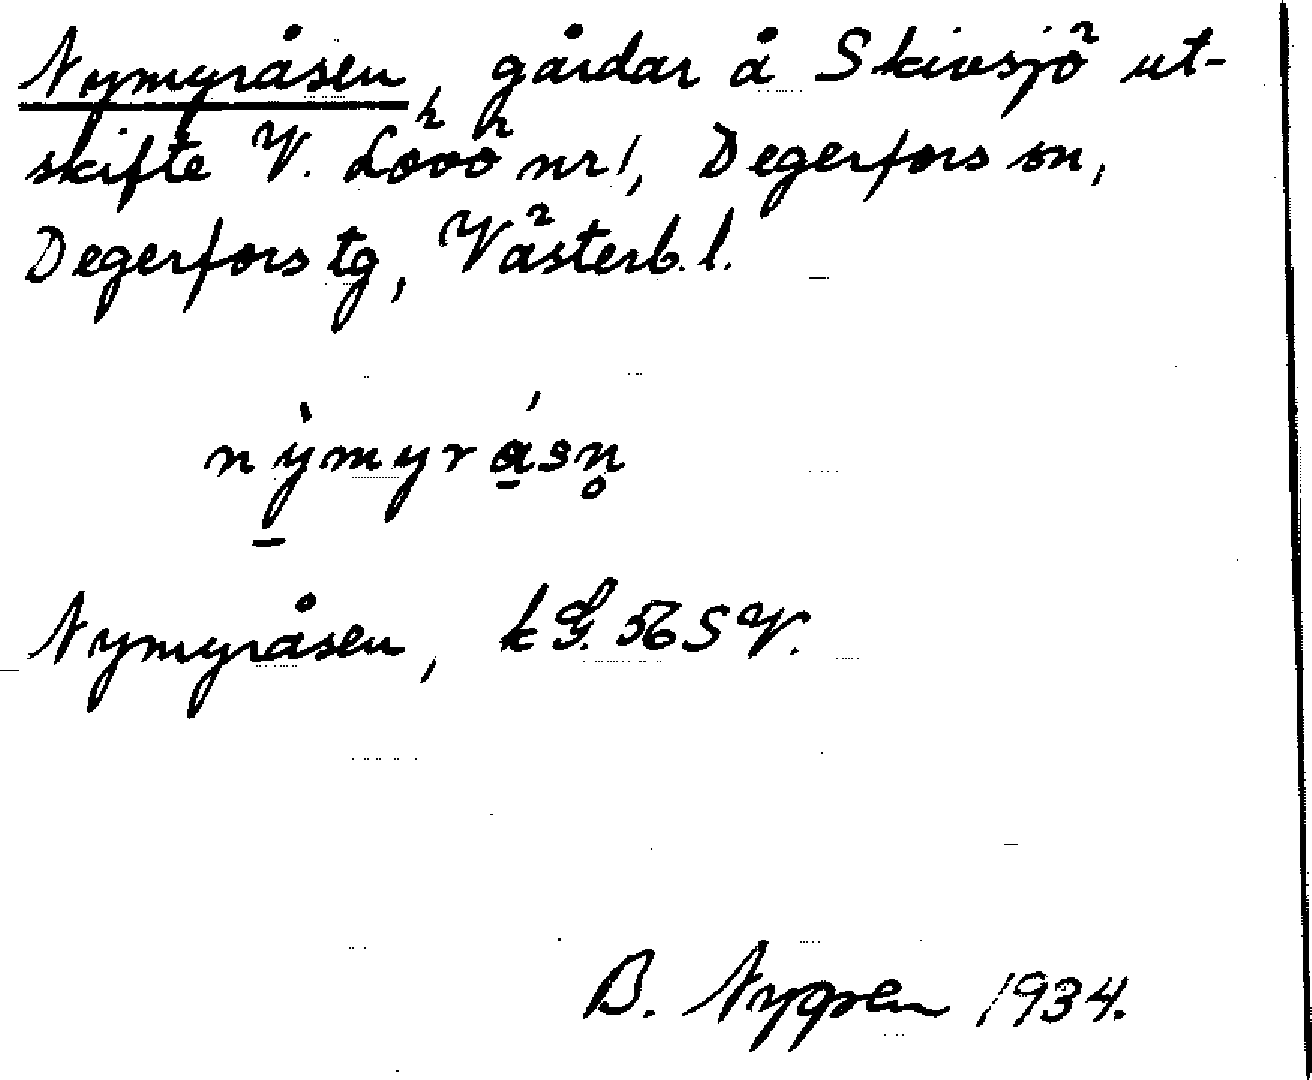 Nymyråsen, gårdar å Skivsjö ut-
skifte V. Lövö nr 1, Degerfors sn,
Degerfors tg, Västerb. l.
nỳ̠myrá̠sn̥
Nymyråsen, kG. 56 SV.
B. Nygren 1934.